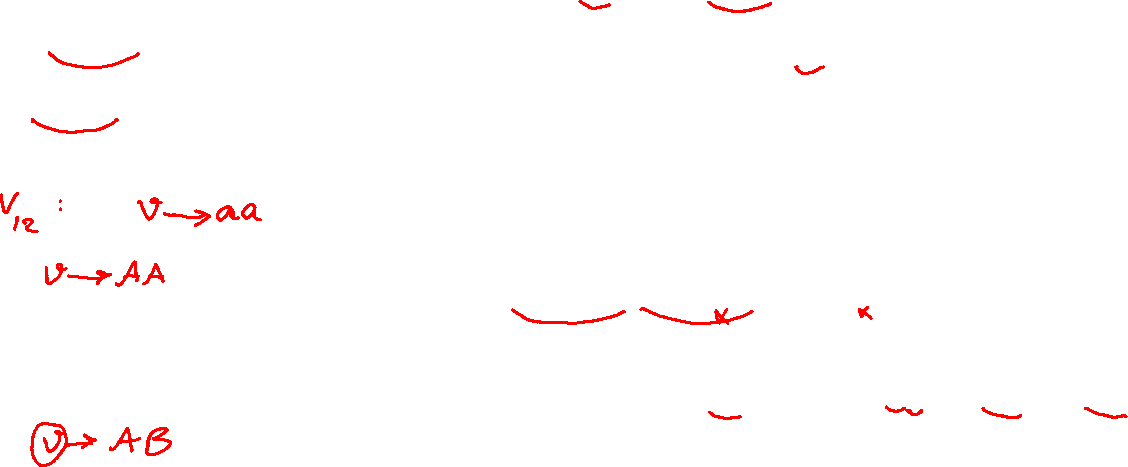 V₁₂ : v → aa
v → AA
v → AB